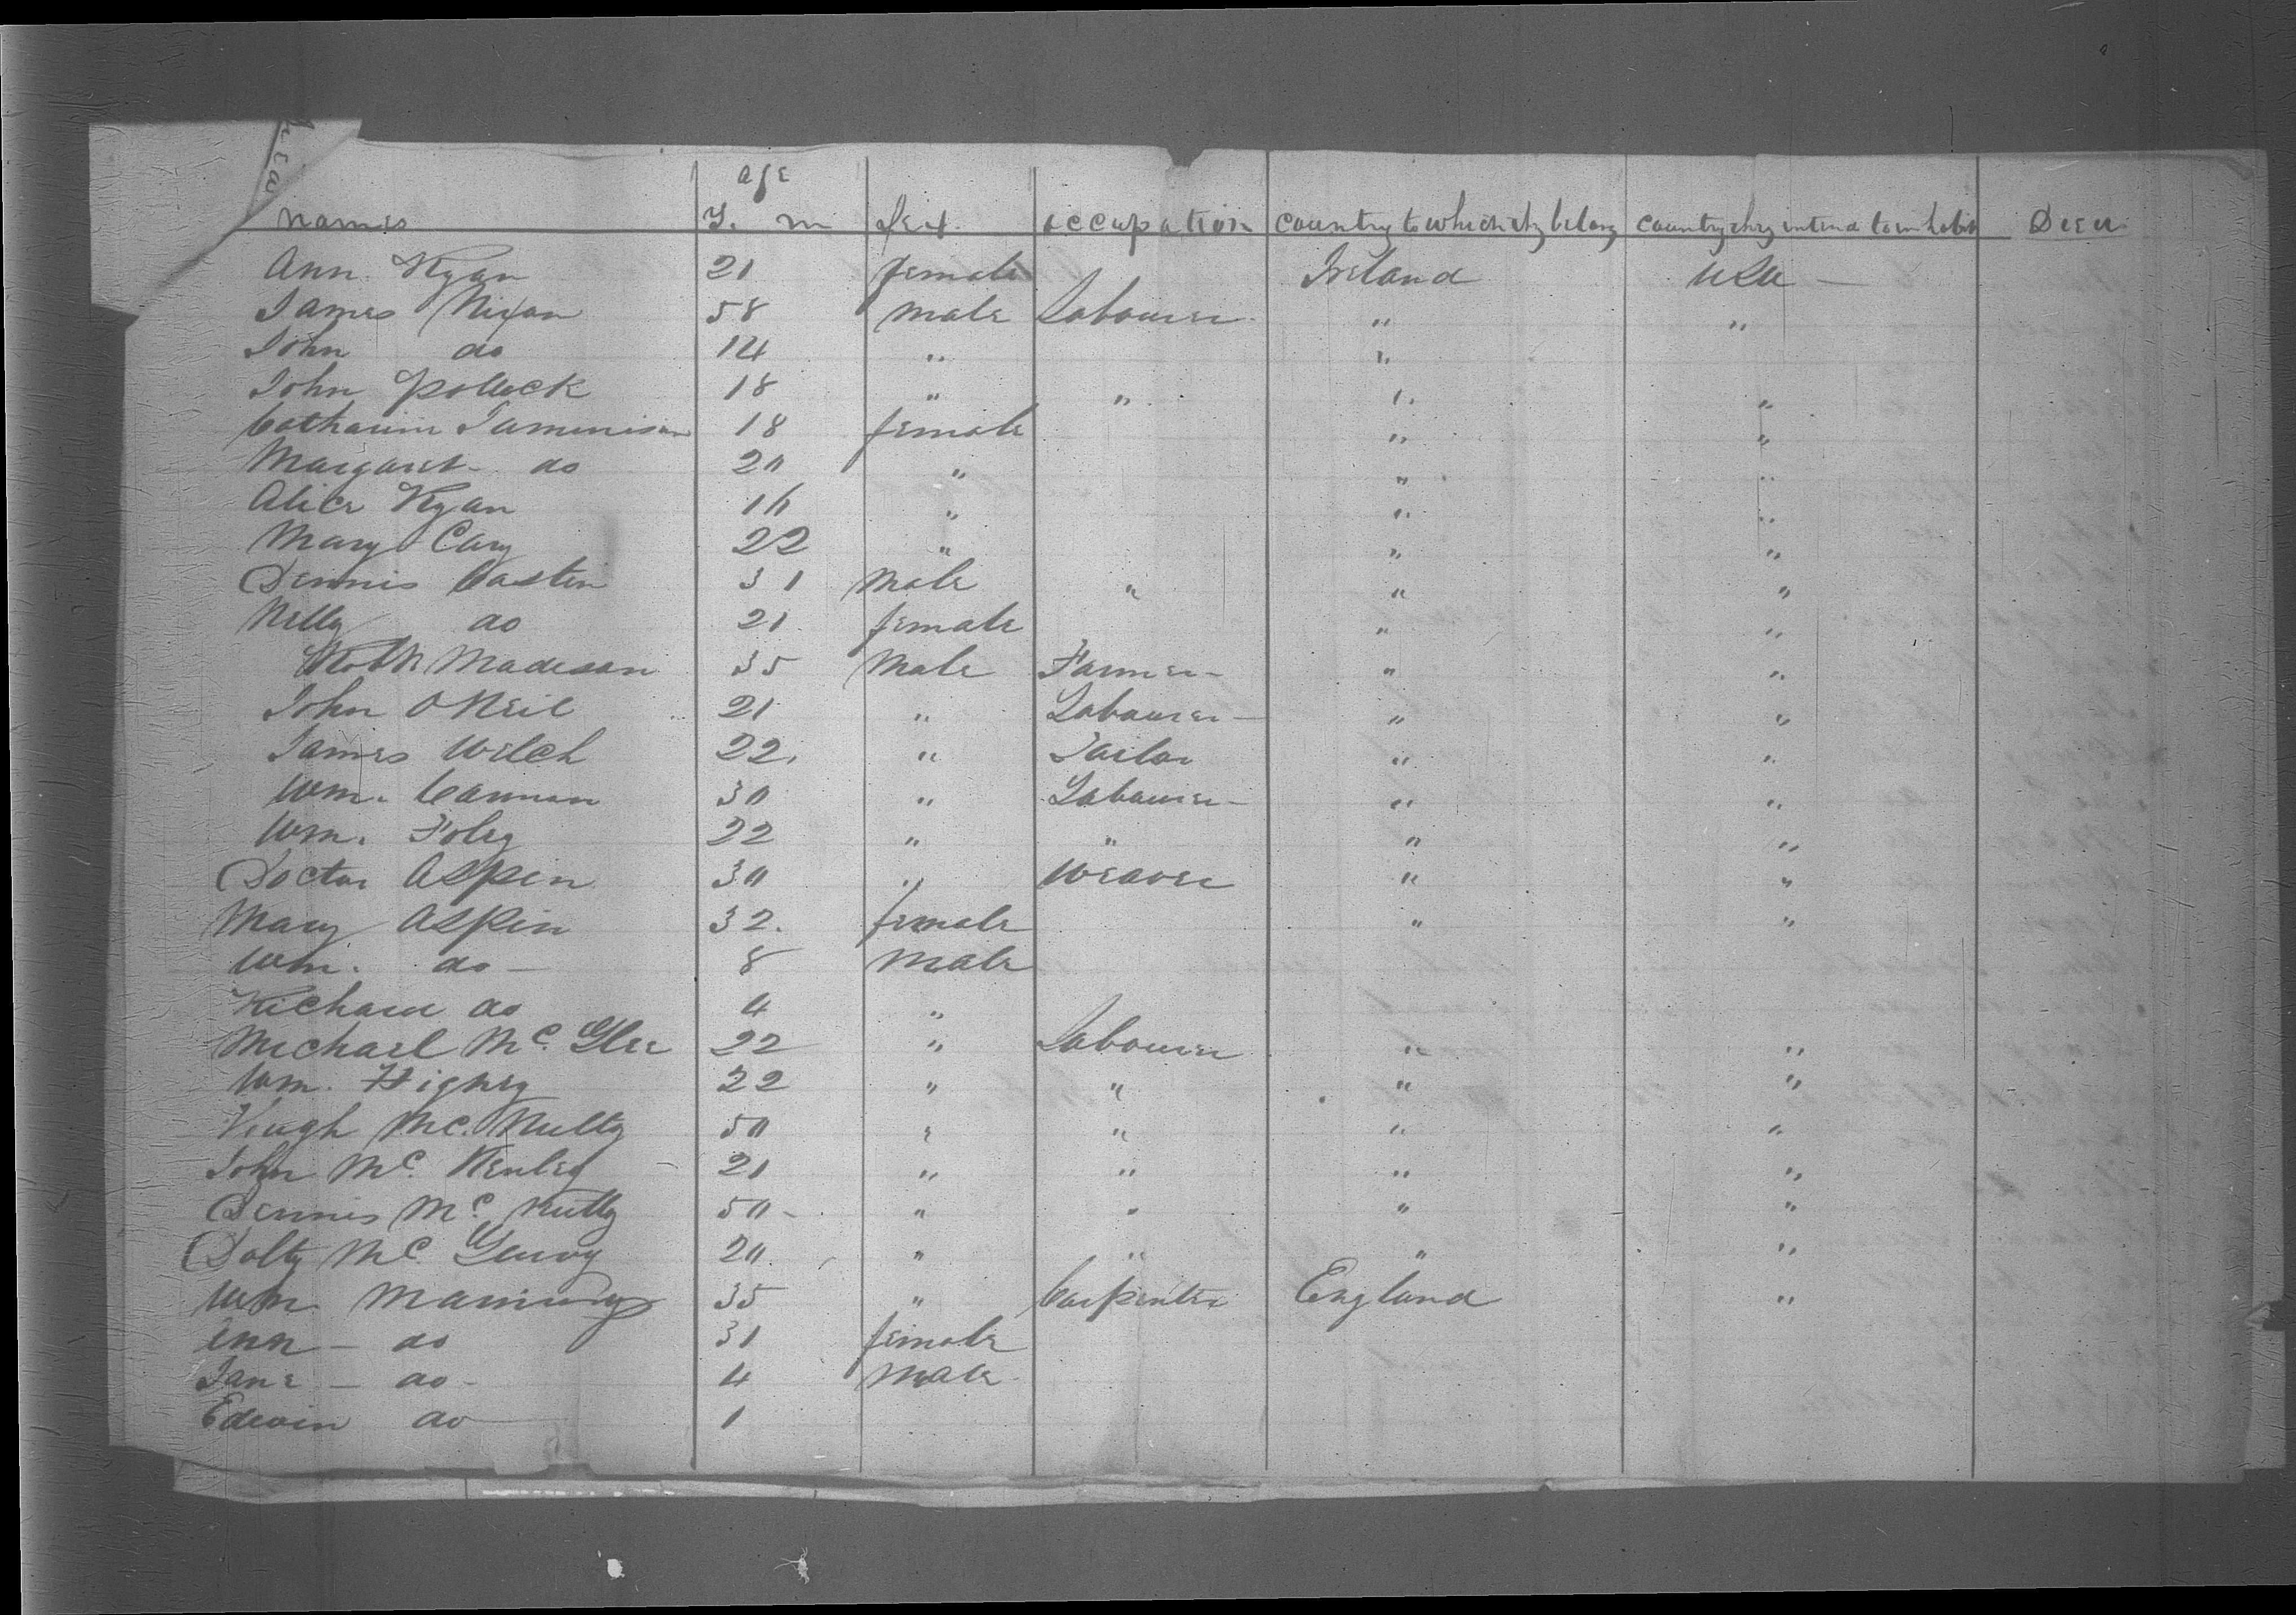 age
names Y. m Sex. occupation Country to which they belong Country they intend to inhabit Died
Ann Ryan 21 female Ireland USA —
James Nixon 58 male Labourer " "
John do 14 " "
John Pollock 18 " " " "
Catharine Jammison 18 female " "
Margaret do 20 " " "
Alice Ryan 16 " " "
Mary Cary 22 " " "
Dennis Costen 31 male " " "
Nelly do 21 female " "
Robt Madison 35 male Farmer " "
John O Neil 21 " Labourer " "
James Welch 22. " Tailor " "
Wm. Cannon 30 " Labourer " "
Wm. Foley 22 " " " "
Doctor Aspin 30 " Weaver " "
Mary Aspin 32. female " "
Wm. do — 8 male
Richard do 4 "
Michael Mc. 22 " Labourer " "
Wm. Higney 22 " " " "
Hugh Mc. Nulty 50 " " " "
John Mc. 21 " " " "
Dennis Mc. Nulty 50 - " " " "
Dolty Mc. 20. " " " "
Wm. Manning 35 " Carpenter England "
Ann — do 31 female
Jane — do - 4 male
Edwin do 1